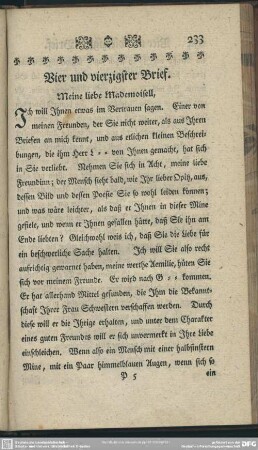 233
Vier und vierzigster Brief.
Meine liebe Mademoisell,
Ich will Ihnen etwas im Vertrauen sagen. Einer von
meinen Freunden, der Sie nicht weiter, als aus Ihren
Briefen an mich kennt, und aus etlichen kleinen Beschrei-
bungen, die ihm Herr L - - von Ihnen gemacht, hat sich
in Sie verliebt. Nehmen Sie sich in Acht, meine liebe
Freundinn; der Mensch sieht bald, wie Ihr lieber Opitz, aus,
dessen Bild und dessen Poesie Sie so wohl leiden können;
und was wäre leichter, als daß er Ihnen in dieser Mine
gefiele, und wenn er Ihnen gefallen hätte, daß Sie ihn am
Ende liebten? Gleichwohl weis ich, daß Sie die Liebe für
ein beschwerliche Sache halten. Ich will Sie also recht
aufrichtig gewarnet haben, meine werthe Aemilie, hüten Sie
sich vor meinem Freunde. Er wird nach G - s kommen.
Er hat allerhand Mittel gefunden, die Ihm die Bekannt-
schaft Ihrer Frau Schwestern verschaffen werden. Durch
diese will er die Ihrige erhalten, und unter dem Charakter
eines guten Freundes will er sich unvermerkt in Ihre Liebe
einschleichen. Wenn also ein Mensch mit einer halbfinstern
Mine, mit ein Paar himmelblauen Augen, wenn sich so
P 5
ein